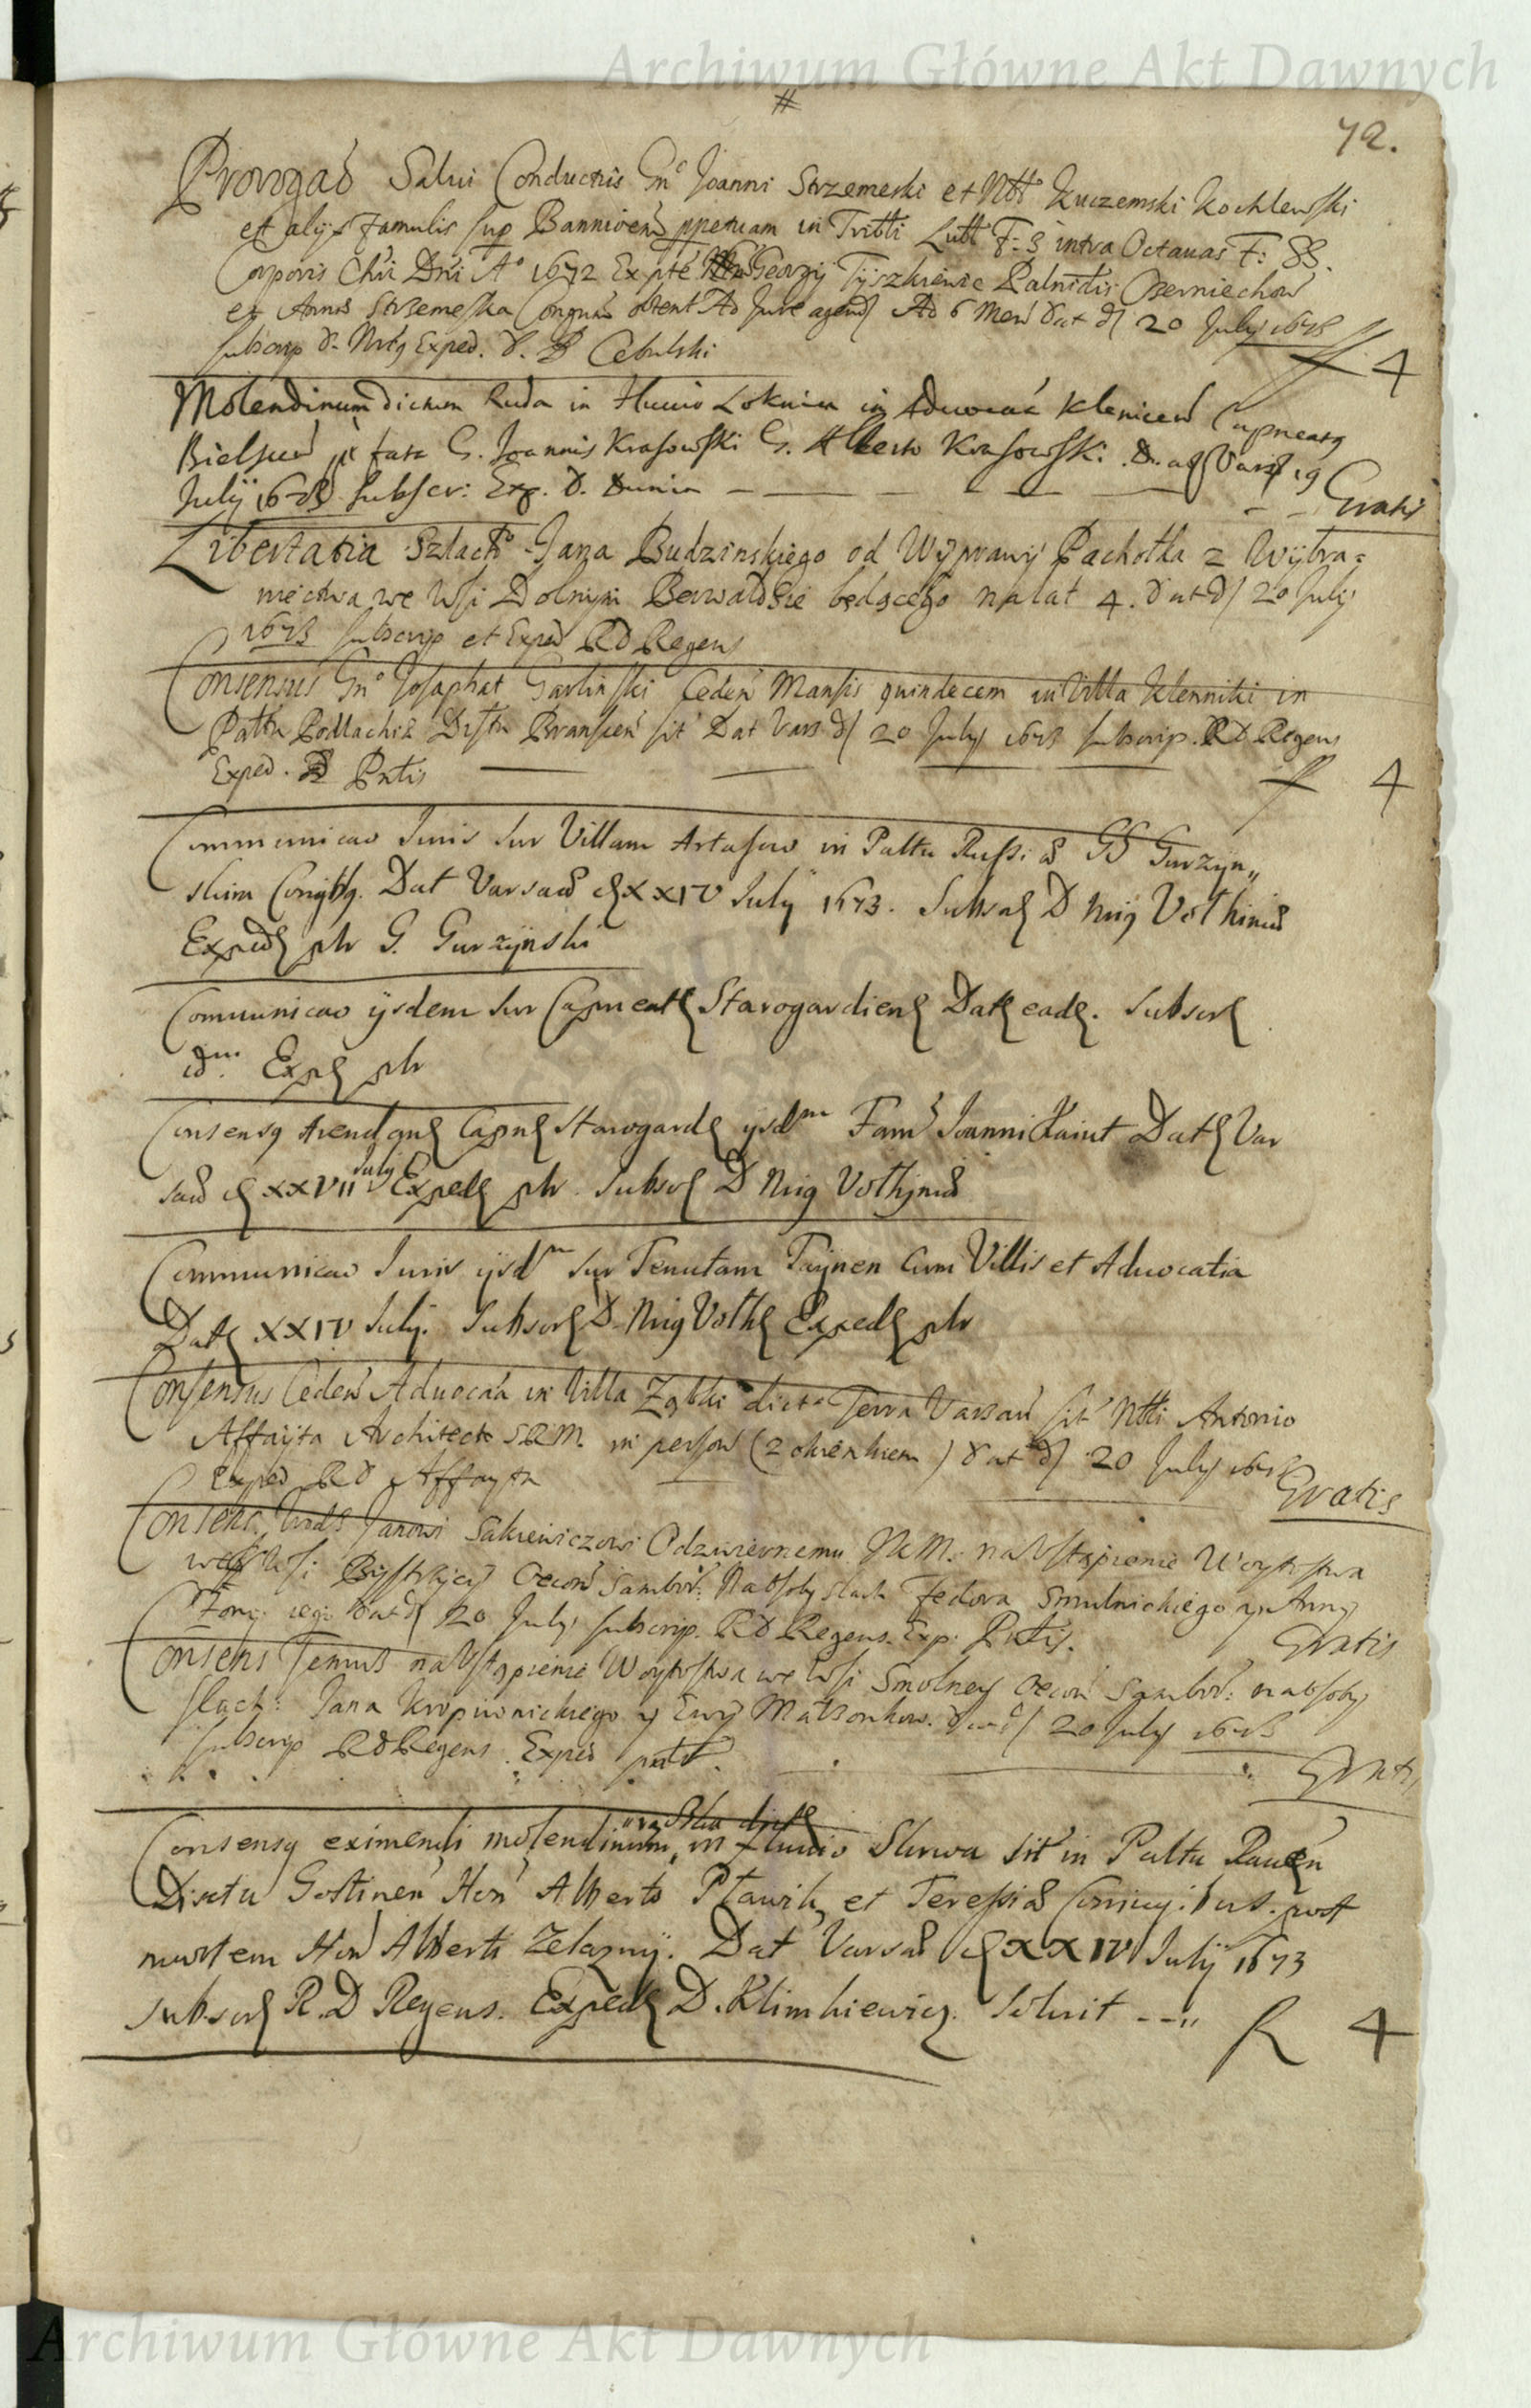 Archiwum Główne Akt Dawnych
#
72.
Prorogaõ Salui Conductus Gn° Joanni Strzemeski et Ntt Kuczemski Kochlewski
et alijs famulis sup Bannioen ppetuam in Tribli Lubl F: 3 intra Octauas F: SS.
Corporis Chri Dni A° 1672 Ex pte Georgij Tyszkiewic Palnidis Czerniechow
et Annae Strzemeska Coniug obtent Ad Jure agend Ad 6 Men Dat d 20 July 1673
subscrip D. Mrtg Exped. D. Cebulski
ff 4
Molendinum dictum Ruda in fluuio Loknica in Aduocaa Kleniceń Capneatg
Bielscen pt fata G. Joannis Krasowski G. Alberto Krasowski. D. ag Vars 19
July 1673 subscr: Exp. D. Dunin — — — — Gratis
Libertatia Szlach° Jana Budzinskiego od Wyprawy Pachołka z Wybra=
niectwa we Wsi Dolnym Barwałdzie będącego na lat 4. Dat d 20 July
1673 subscrip et Exped RD Regens
Consensus Gn° Josaphat Garlinski Ceden Mansis quindecem in Villa Klenniki in
Pałtu Podlachiae Distu Bransceń sit Dat Vars d 20 July 1673 subscrip. RD Regens
Exped. D Pntis — — — ff 4
Communicao Juris sur Villam Artasow in Paltu Russi ad GG Gurzyn„
skim Coniugg. Dat Varsau d XXIV July 1673. Subscr D Mrg Vothinus
Exped ptr G. Gurzynski
Comunicao ijsdem sur Capneatg Starogardien Dat ead. Subscr
idm. Exp ptr
Consensg Arend Capn Starogard ijsdm Fam Joanni Dat Var
sau d XXVII July Exped ptr. Subscr D Mrg Vothinus
Communicao Juris ijsdm sur Tenutam Taynen Cum Villis et Aduocatia
Dat XXIV July. Subscr D Mrg Voth Exped ptr
Consensus Ceden Aduocaa in Villa Ząbki dicta Terra Varsau sit Ntli Antonio
Affayta Architecto S.R.M. in person (z okienkiem) Dat d 20 July 1673
Exped RD Affayta — — Gratis
Consens Janowi Sakiewiczowi Odzwiernemu JKM. na Vstąpienie Woytostwa
we Wsi Bystrzycy Oecon Sambor: Nabsoby slach Fedora Smulnickiego y Anny
Zony iego Dat d 20 July subscrip. RD Regens. Exp: Pntis. Gratis
Consens Temuz na Vstąpienie Woytostwa we Wsi Smolney Oecon Sambor: nabsoby
slach: Jana Kropiwnickiego y Ewy Małzonkow. Dat d 20 July 1673
subscrip RD Regens. Exped pntt. Gratis
Consensg eximendi molendinum, in fluuio Skrwa sit in Paltu Rauen
Distu Gostinen Hon Alberto Pławik et Teressiae Coniugibus. post
mortem Hon Alberti Zelazny. Dat Varsau d XXIV July 1673
subscr R.D Regens. Exped D. Klimkiewicz. Soluit --„ R 4
Archiwum Główne Akt Dawnych